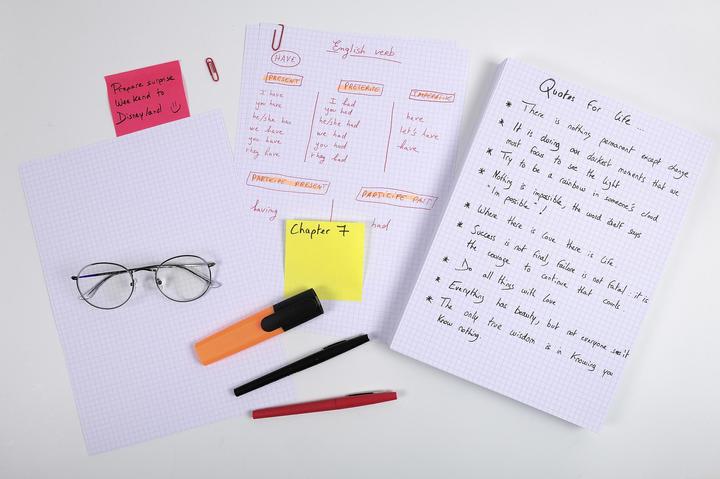 Prepare surprise
Weekend to
Disneyland
English verb
HAVE
PRESENT
I have
you have
he/she has
we have
you have
they have
PRETERITE
I had
you had
he/she had
we had
you had
they had
IMPERATIVE
have
let's have
have
PARTICIPE PRESENT
having
PARTICIPE PAST
had
Chapter 7
Quotes For Life ...
* There is nothing permanent except change
* It is during our darkest moments that we
must focus to see the light
* Try to be a rainbow in someone's cloud
* Nothing is impossible, the word itself says
"I'm possible"!
* Where there is love there is life
* Success is not final, failure is not fatal: it is
the courage to continue that counts
* Do all things with love
* Everything has beauty, but not everyone sees it
* The only true wisdom is in knowing you
know nothing.